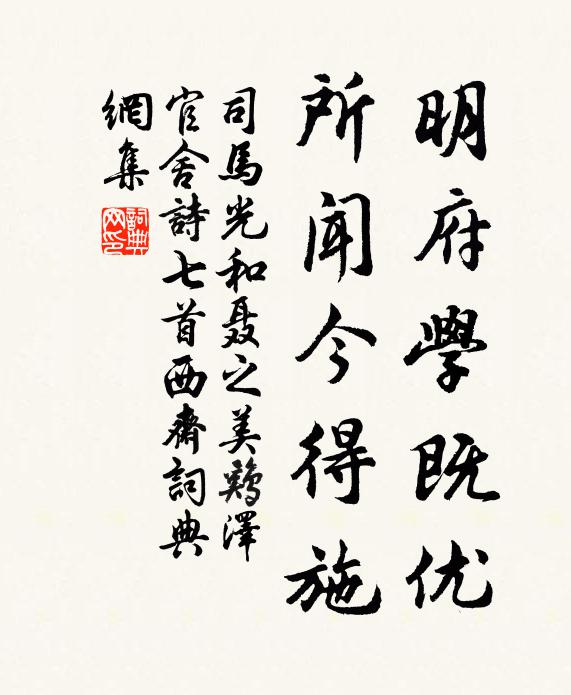 明府學既优
所聞今得施
司馬光和聂之美鷄澤
官舍詩七首西齋詞典
網集
詞典网印